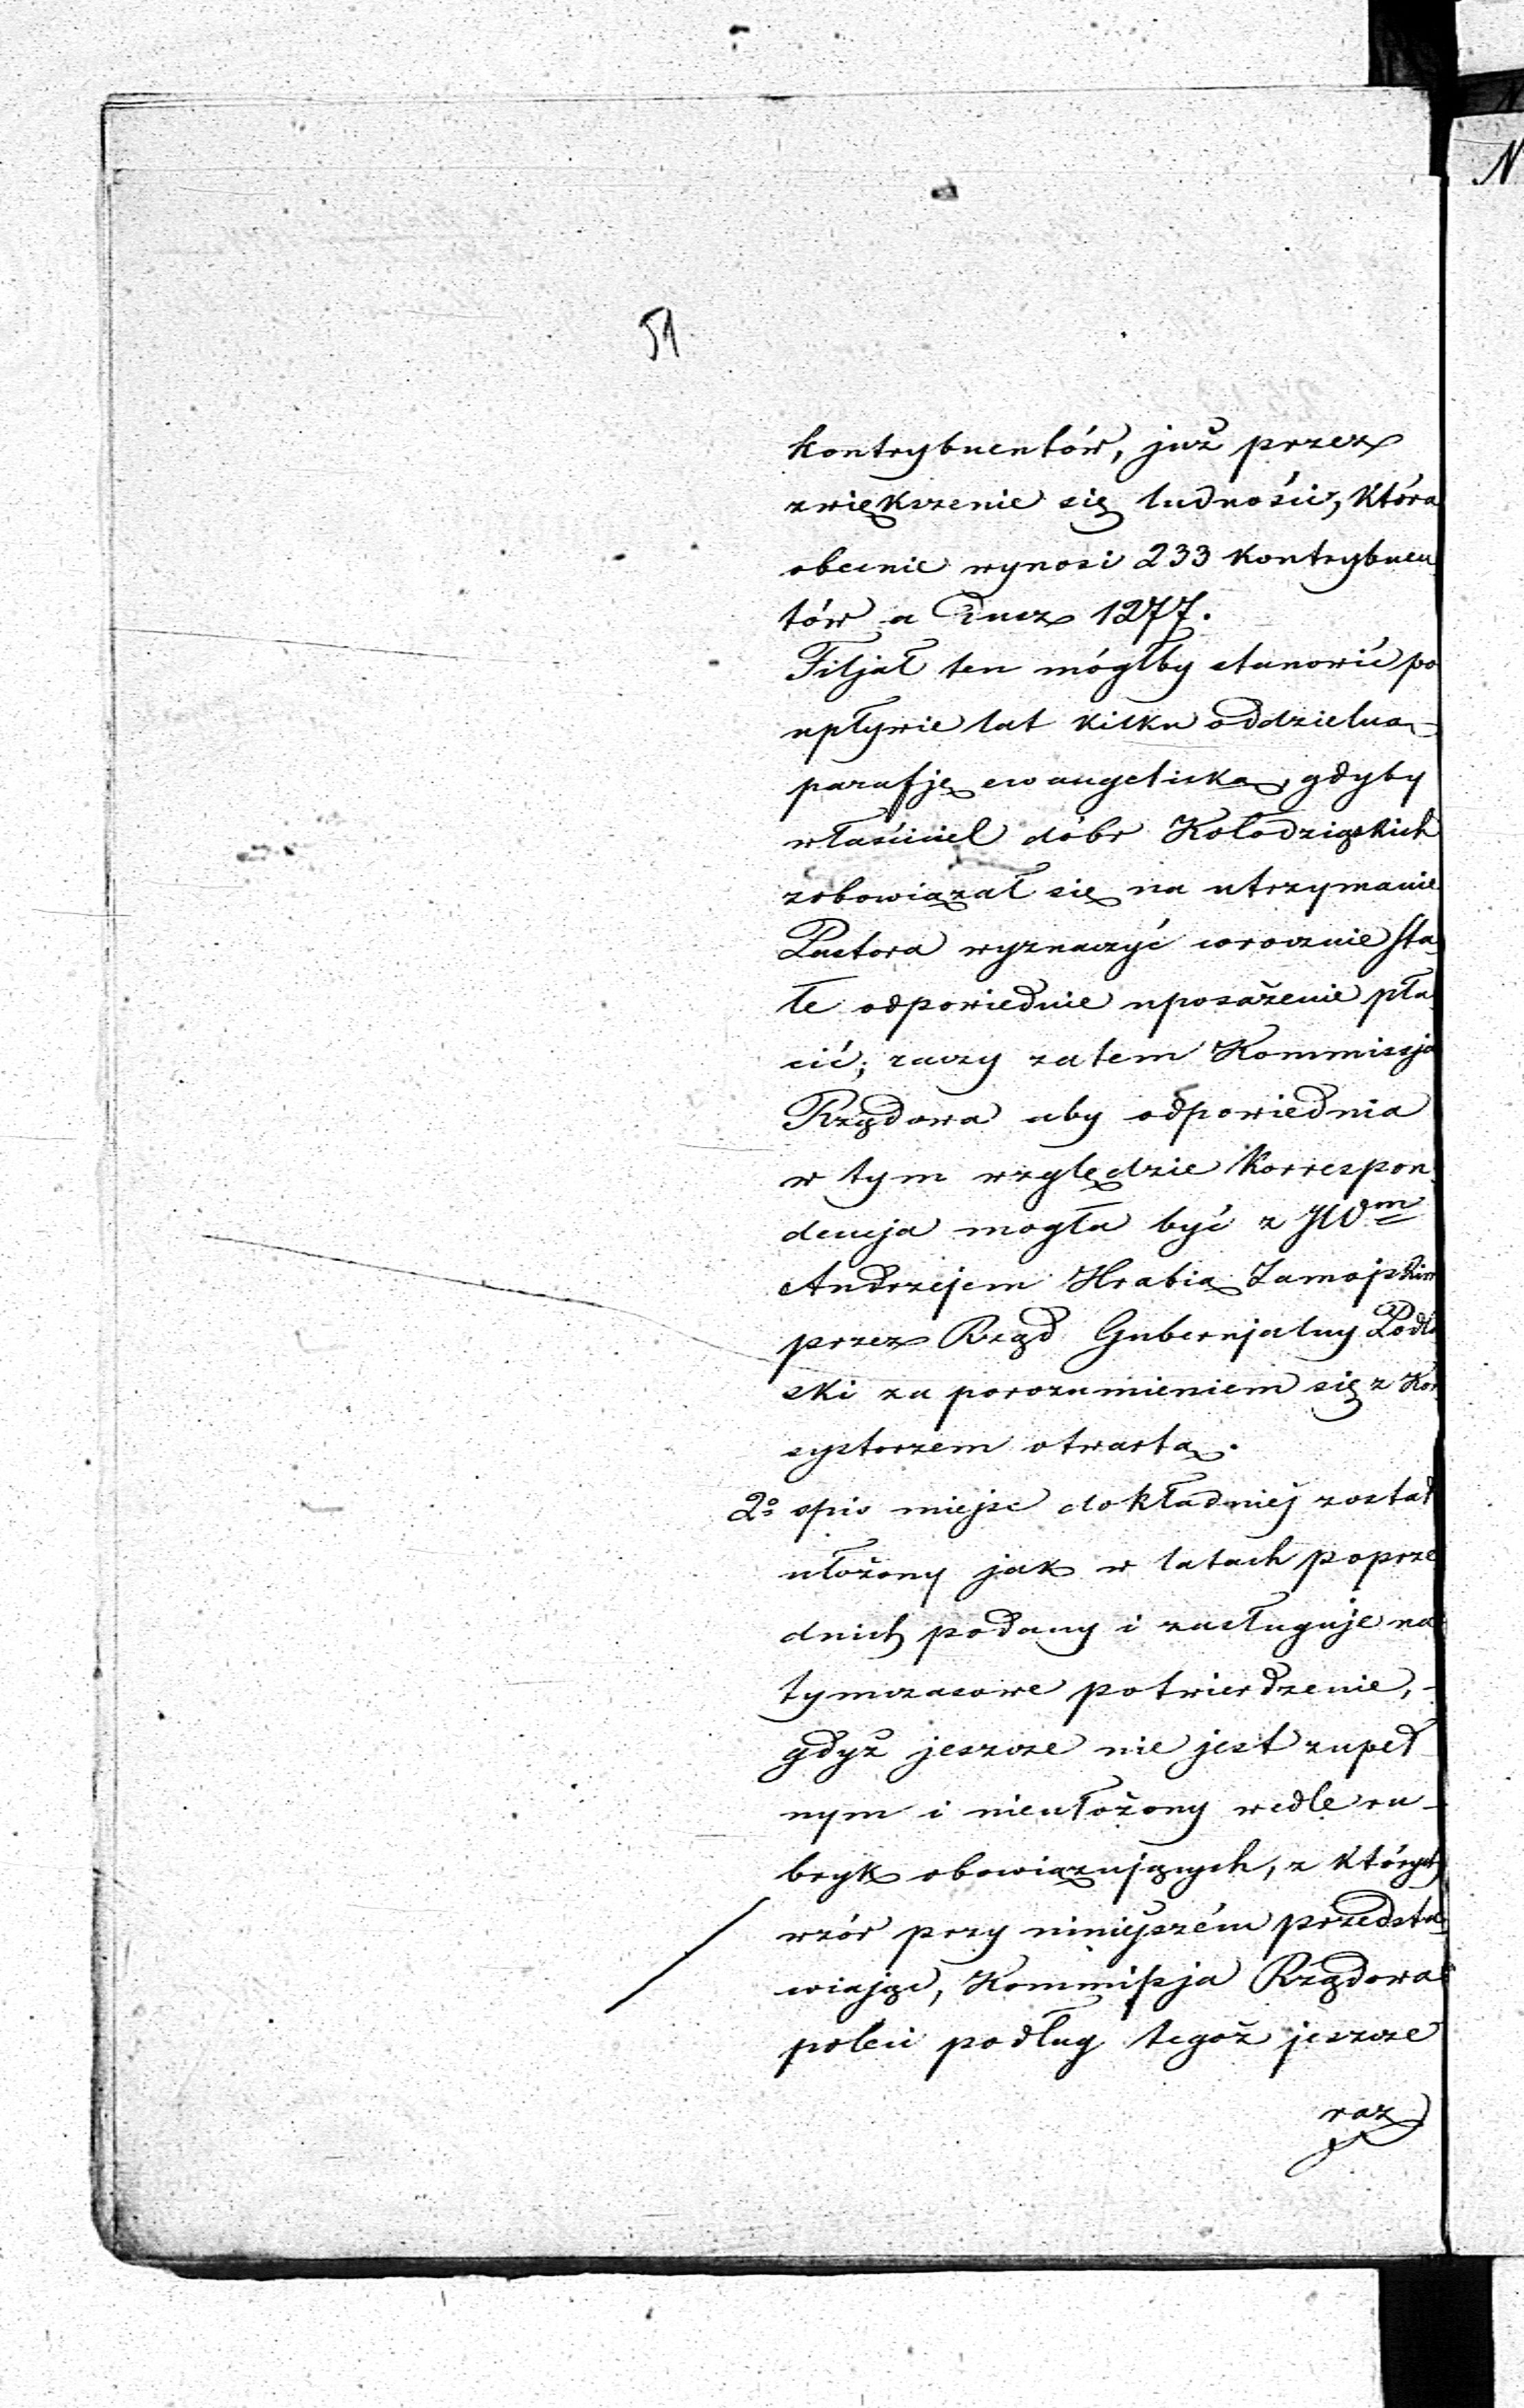 51
kontrybuentów, już przez
zwiększenie się ludności, która
obecnie wynosi 233 kontrybuen
tów a dusz 1277.
Filjał ten mógłby stanowić po
upływie lat kilku oddzielną
parafję ewangelicką, gdyby
właściciel dóbr Kołodziąskich
zobowiązał się na utrzymanie
Pastora wyznaczyć corocznie sta
łe odpowiednie uposażenie pła
cić; raczy zatem Kommissja
Rządowa aby odpowiednia
w tym względzie korrespon
dencja mogła być z JWm
Andrzejem Hrabią Zamojskim
przez Rząd Gubernjalny Podla
ski za porozumieniem się z Kon
systorzem otwartą.
2o spis miejsc dokładniej został
ułożony jak w latach poprze
dnich podany i zasługuje na
tymczasowe potwierdzenie,
gdyż jeszcze nie jest zupeł
nym i nieułożony wedle ru-
bryk obowiązujących, z których
wzór przy niniejszém przedsta
wiając, Kommissja Rządowa
poleci podług tegoż jeszcze
raz
N